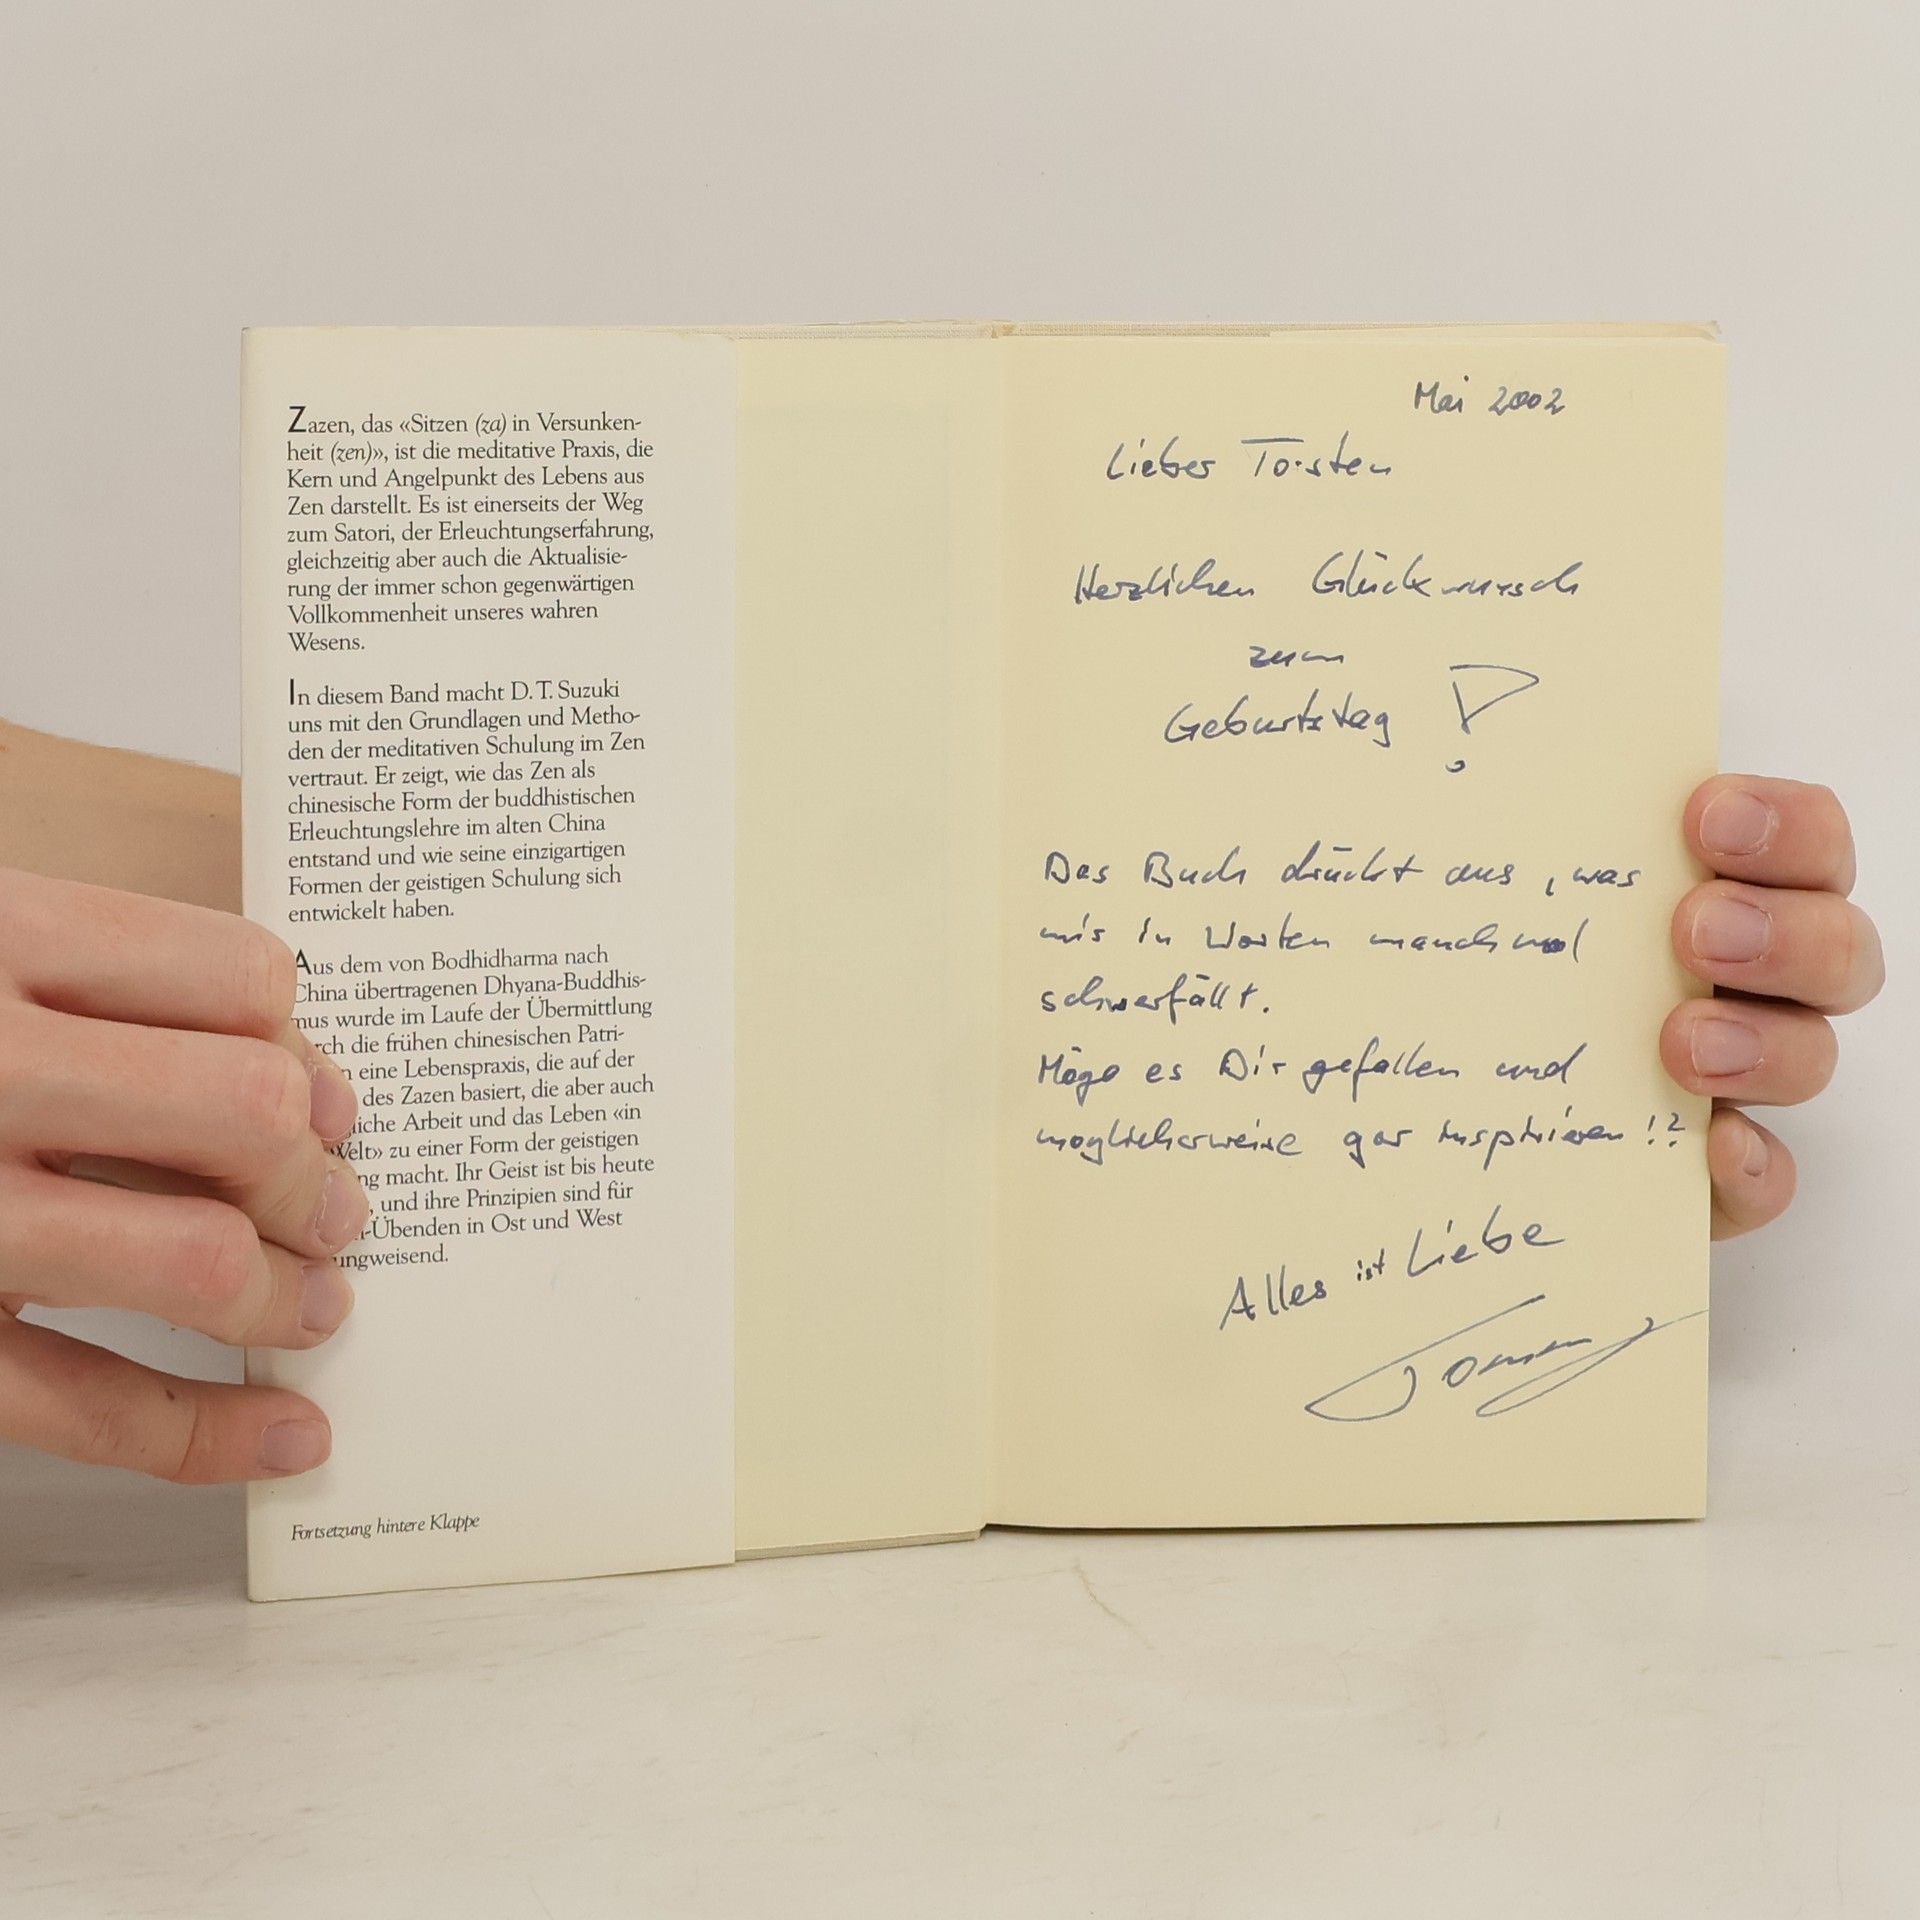 Zazen, das «Sitzen (za) in Versunken-
heit (zen)», ist die meditative Praxis, die
Kern und Angelpunkt des Lebens aus
Zen darstellt. Es ist einerseits der Weg
zum Satori, der Erleuchtungserfahrung,
gleichzeitig aber auch die Aktualisie-
rung der immer schon gegenwärtigen
Vollkommenheit unseres wahren
Wesens.
In diesem Band macht D. T. Suzuki
uns mit den Grundlagen und Metho-
den der meditativen Schulung im Zen
vertraut. Er zeigt, wie das Zen als
chinesische Form der buddhistischen
Erleuchtungslehre im alten China
entstand und wie seine einzigartigen
Formen der geistigen Schulung sich
entwickelt haben.
Aus dem von Bodhidharma nach
China übertragenen Dhyana-Buddhis-
mus wurde im Laufe der Übermittlung
die frühen chinesischen Patri-
eine Lebenspraxis, die auf der
des Zazen basiert, die aber auch
Arbeit und das Leben «in
Welt» zu einer Form der geistigen
macht. Ihr Geist ist bis heute
, und ihre Prinzipien sind für
-Übenden in Ost und West
ungweisend.
Fortsetzung hintere Klappe
Mai 2002
Lieber Torsten
Herzlichen Glückwunsch
zum
Geburtstag !
Das Buch drückt aus, was
mir in Worten manchmal
schwerfällt.
Möge es Dir gefallen und
möglicherweise gar inspirieren !?
Alles ist Liebe
Tommy